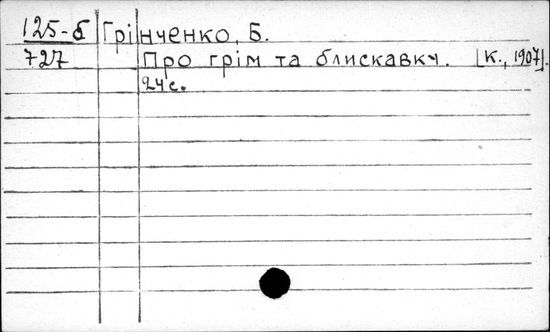 125-б Грінченко, Б.
727 Про грім та блискавку. [К., 1907].
24 с.